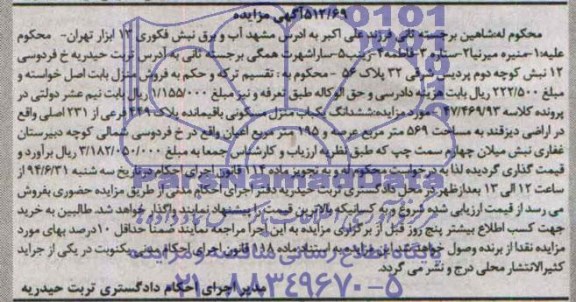 ۵۱۲/۶۹آگهی مزایده
محکوم له:شاهین برجسته ثانی فرزند علی اکبر به ادرس مشهد آب و برق نبش فکوری ۱۳ ابزار تهران- محکوم
علیه:۱-منیره میرنیا۲-ستاره ۳-فاطمه۴-زینب۵-ساراشهرت همگی برجسته ثانی به آدرس تربت حیدریه خ فردوسی
۱۲ نبش کوچه دوم پردیس شرقی ۳۲ پلاک ۵۶ - محکوم به: تقسیم ترکه و حکم به فروش منزل بابت اصل خواسته و
مبلغ ۲۲۲/۵۰۰ ریال بابت هزینه دادرسی و حق الوکاله طبق تعرفه و نیز مبلغ ۱/۱۵۵/۰۰۰ ریال بابت نیم عشر دولتی در
پرونده کلاسه ۹۷/۴۶۹/۹۳ - مورد مزایده:ششدانگ یکباب منزل مسکونی باقیمانده پلاک ۴۴۹ فرعی از ۲۳۱ اصلی واقع
در اراضی دیزقند به مساحت ۵۶۹ متر مربع عرصه و ۱۹۵ متر مربع اعیان واقع در خ فردوسی شمالی کوچه دبیرستان
غفاری نبش میلان چهارم سمت چپ که طبق نظریه ارزیاب و کارشناس جمعا به مبلغ ۳/۱۸۲/۰۵۰/۰۰۰ ریال برآورد و
قیمت گذاری گردیده لذا به درخواست محکوم له و به تجویز ماده ۱۱۴ قانون اجرای احکام در تاریخ سه شنبه ۹۴/۶/۳۱ از
ساعت ۱۲ الی ۱۳ بعدازظهر در محل دادگستری تربت حیدریه دفتر اجرای احکام مدنی از طریق مزایده حضوری بفروش
می رسد از قیمت ارزیابی شده شروع و به کسانیکه بالاترین قیمت را پیشنهاد نمایند واگذار خواهد شد. طالبین به خرید
جهت کسب اطلاع بیشتر پنج روز قبل از برگزاری مزایده به این اجرا مراجعه نمایند ضمنا حداقل ۱۰درصد بهای مورد
مزایده نقدا از برنده وصول خواهد شد این مزایده به استنادماده ۱۱۸ قانون اجرای احکام مدنی یکنوبت در یکی از جراید
کثیرالانتشار محلی درج و نشر می گردد.
مدیر اجرای احکام دادگستری تربت حیدریه
پایگاه اطلاع رسانی مناقصه و مزایده
۰۲۱-۸۸۳۴۹۶۷۰-۵